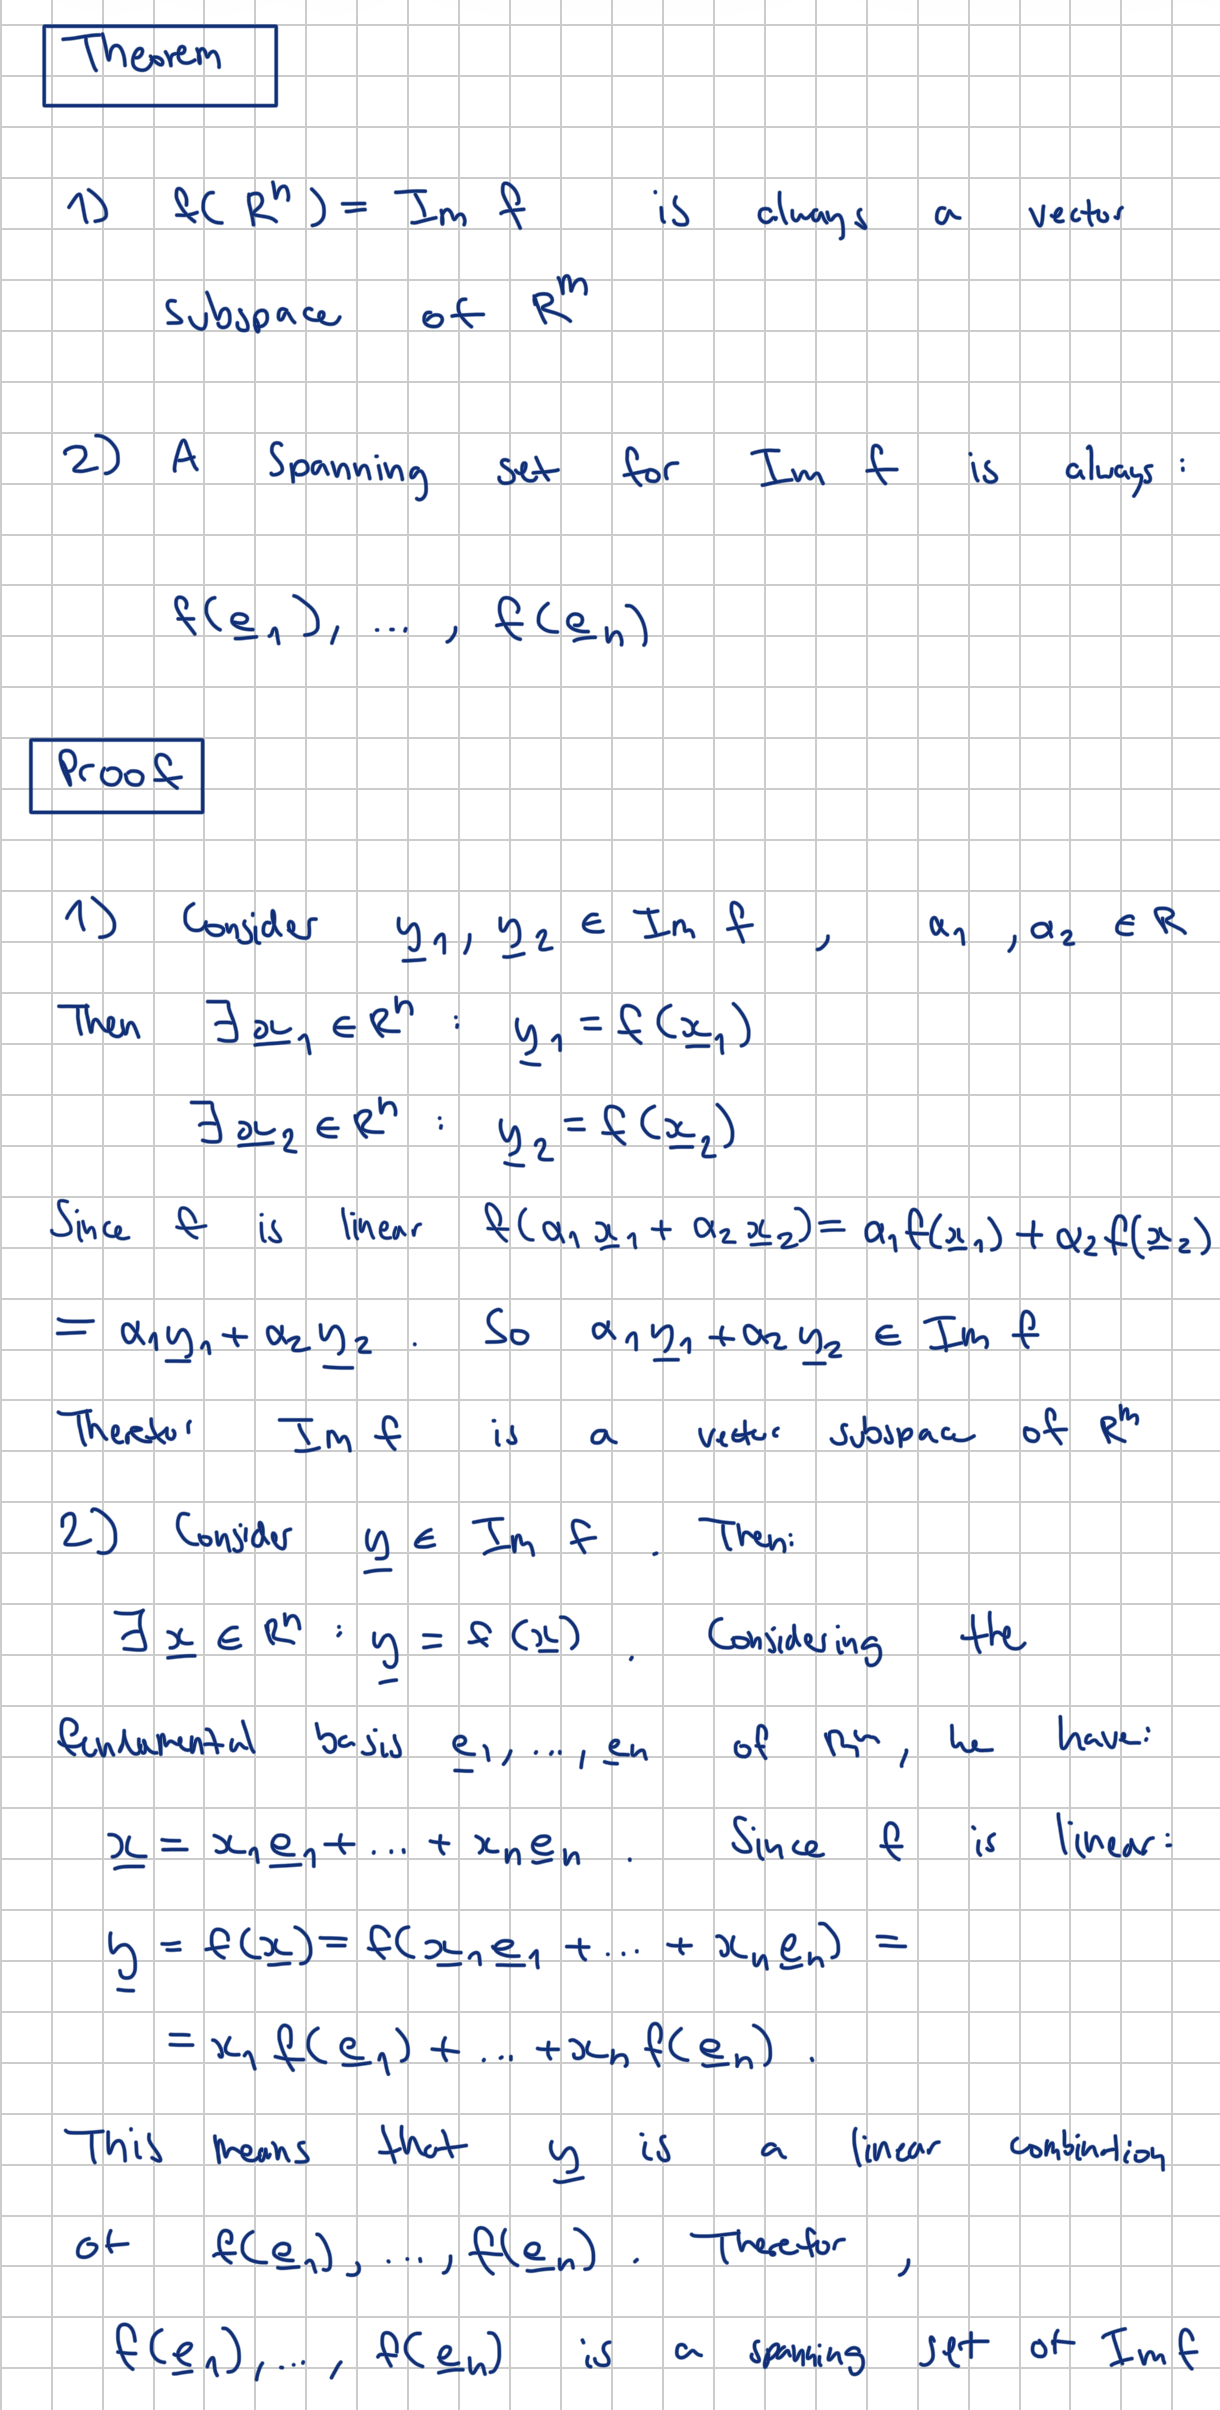 Theorem
1) f( Rⁿ ) = Im f is always a vector
subspace of Rᵐ
2) A Spanning set for Im f is always :
f(e₁), ... , f(eₙ)
Proof
1) Consider y₁, y₂ ∈ Im f , α₁ , α₂ ∈ R
Then ∃ x₁ ∈ Rⁿ : y₁ = f(x₁)
∃ x₂ ∈ Rⁿ : y₂ = f(x₂)
Since f is linear f(α₁ x₁ + α₂ x₂) = α₁ f(x₁) + α₂ f(x₂)
= α₁ y₁ + α₂ y₂ . So α₁ y₁ + α₂ y₂ ∈ Im f
Therefor Im f is a vector subspace of Rᵐ
2) Consider y ∈ Im f . Then:
∃ x ∈ Rⁿ : y = f(x) . Considering the
fundamental basis e₁, ..., eₙ of Rⁿ, we have:
x = x₁ e₁ + ... + xₙ eₙ . Since f is linear:
y = f(x) = f(x₁ e₁ + ... + xₙ eₙ) =
= x₁ f(e₁) + ... + xₙ f(eₙ) .
This means that y is a linear combination
of f(e₁), ..., f(eₙ) . Therefor ,
f(e₁), ..., f(eₙ) is a spanning set of Im f